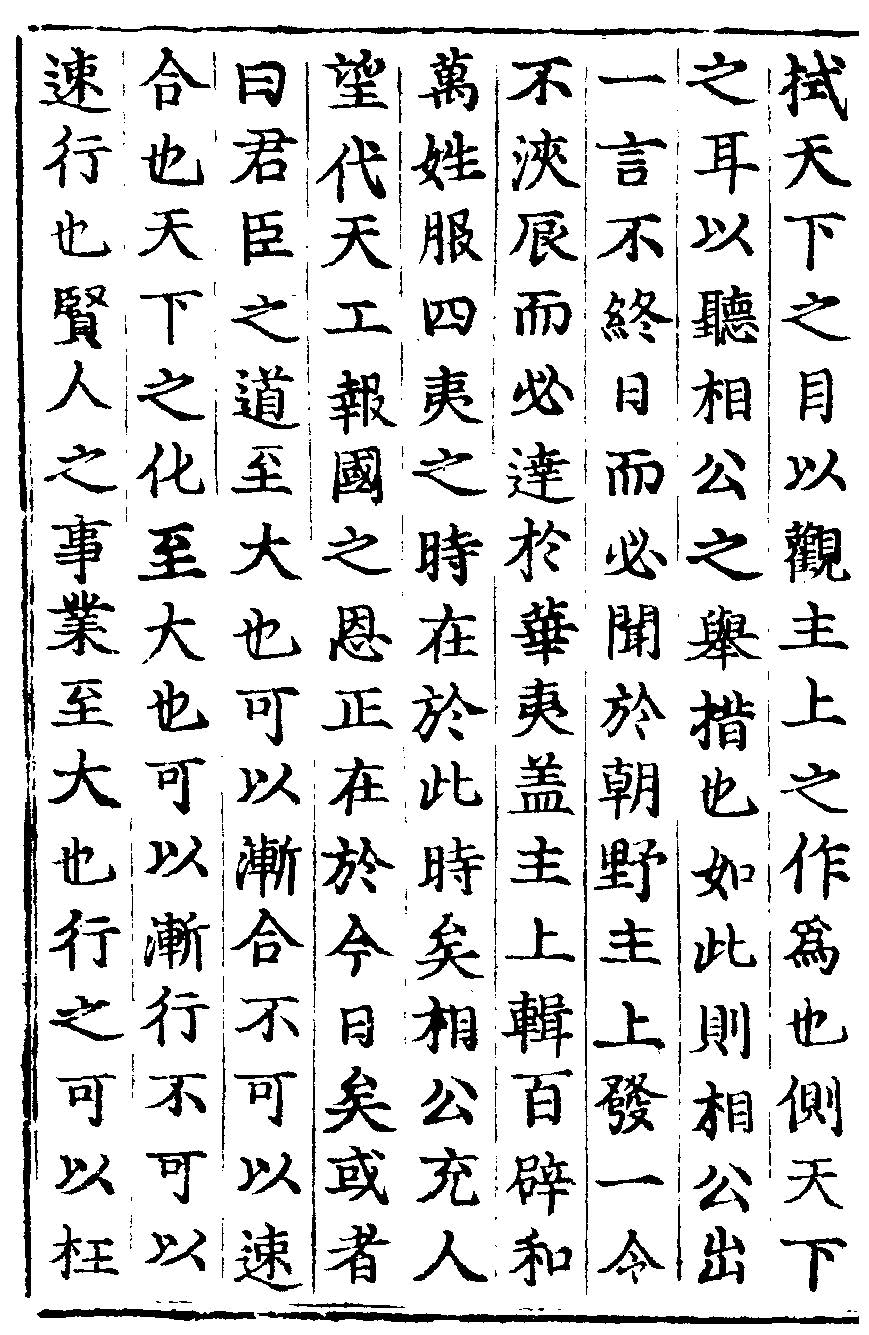 拭天下之目以觀主上之作爲也側天下
之耳以聽相公之舉措也如此則相公出
一言不終日而必聞於朝野主上發一令
不浹辰而必達於華夷盖主上輯百辟和
萬姓服四夷之時在於此時矣相公充人
望代天工報國之恩正在於今日矣或者
曰君臣之道至大也可以漸合不可以速
合也天下之化至大也可以漸行不可以
速行也賢人之事業至大也行之可以枉